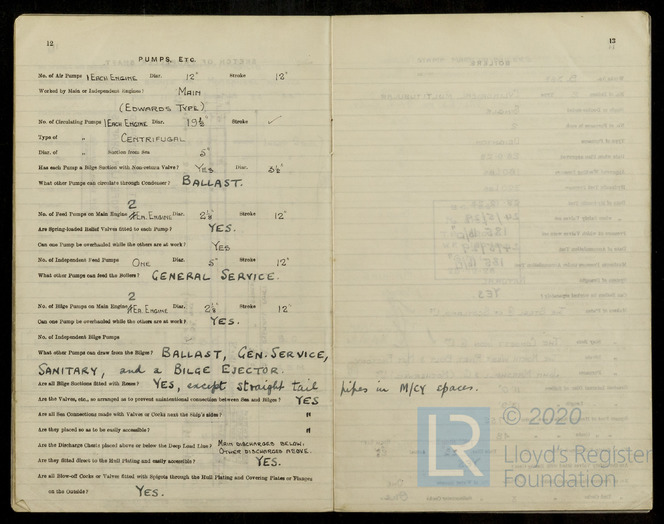 12
PUMPS, ETC.
No. of Air Pumps 1 EACH ENGINE Diar. 12" Stroke 12"
Worked by Main or Independent Engines? MAIN
(EDWARDS TYPE)
No. of Circulating Pumps 1 EACH ENGINE Diar. 19½" Stroke ✓
Type of " CENTRIFUGAL
Diar. of " Suction from Sea 5"
Has each Pump a Bilge Suction with Non-return Valve? YES Diar. 3½"
What other Pumps can circulate through Condenser? BALLAST.
2
No. of Feed Pumps on Main Engine EA. ENGINE Diar. Stroke 12"
Are Spring-loaded Relief Valves fitted to each Pump? YES.
Can one Pump be overhauled while the others are at work? YES
No. of Independent Feed Pumps ONE Diar. 5" Stroke 12"
What other Pumps can feed the Boilers? GENERAL SERVICE.
2
No. of Bilge Pumps on Main Engine EA. ENGINE Diar. Stroke 12"
Can one Pump be overhauled while the others are at work? YES.
No. of Independent Bilge Pumps
What other Pumps can draw from the Bilges? BALLAST, GEN. SERVICE,
SANITARY, and a BILGE EJECTOR.
Are all Bilge Suctions fitted with Roses? YES, except straight tail pipes in M/CY spaces.
Are the Valves, etc., so arranged as to prevent unintentional connection between Sea and Bilges? YES
Are all Sea Connections made with Valves or Cocks next the Ship's sides? "
Are they placed so as to be easily accessible? "
Are the Discharge Chests placed above or below the Deep Load Line? MAIN DISCHARGES BELOW.
OTHER DISCHARGES ABOVE.
Are they fitted direct to the Hull Plating and easily accessible? YES.
Are all Blow-off Cocks or Valves fitted with Spigots through the Hull Plating and Covering Plates or Flanges
on the Outside? YES.
13
LR © 2020
Lloyd's Register
Foundation